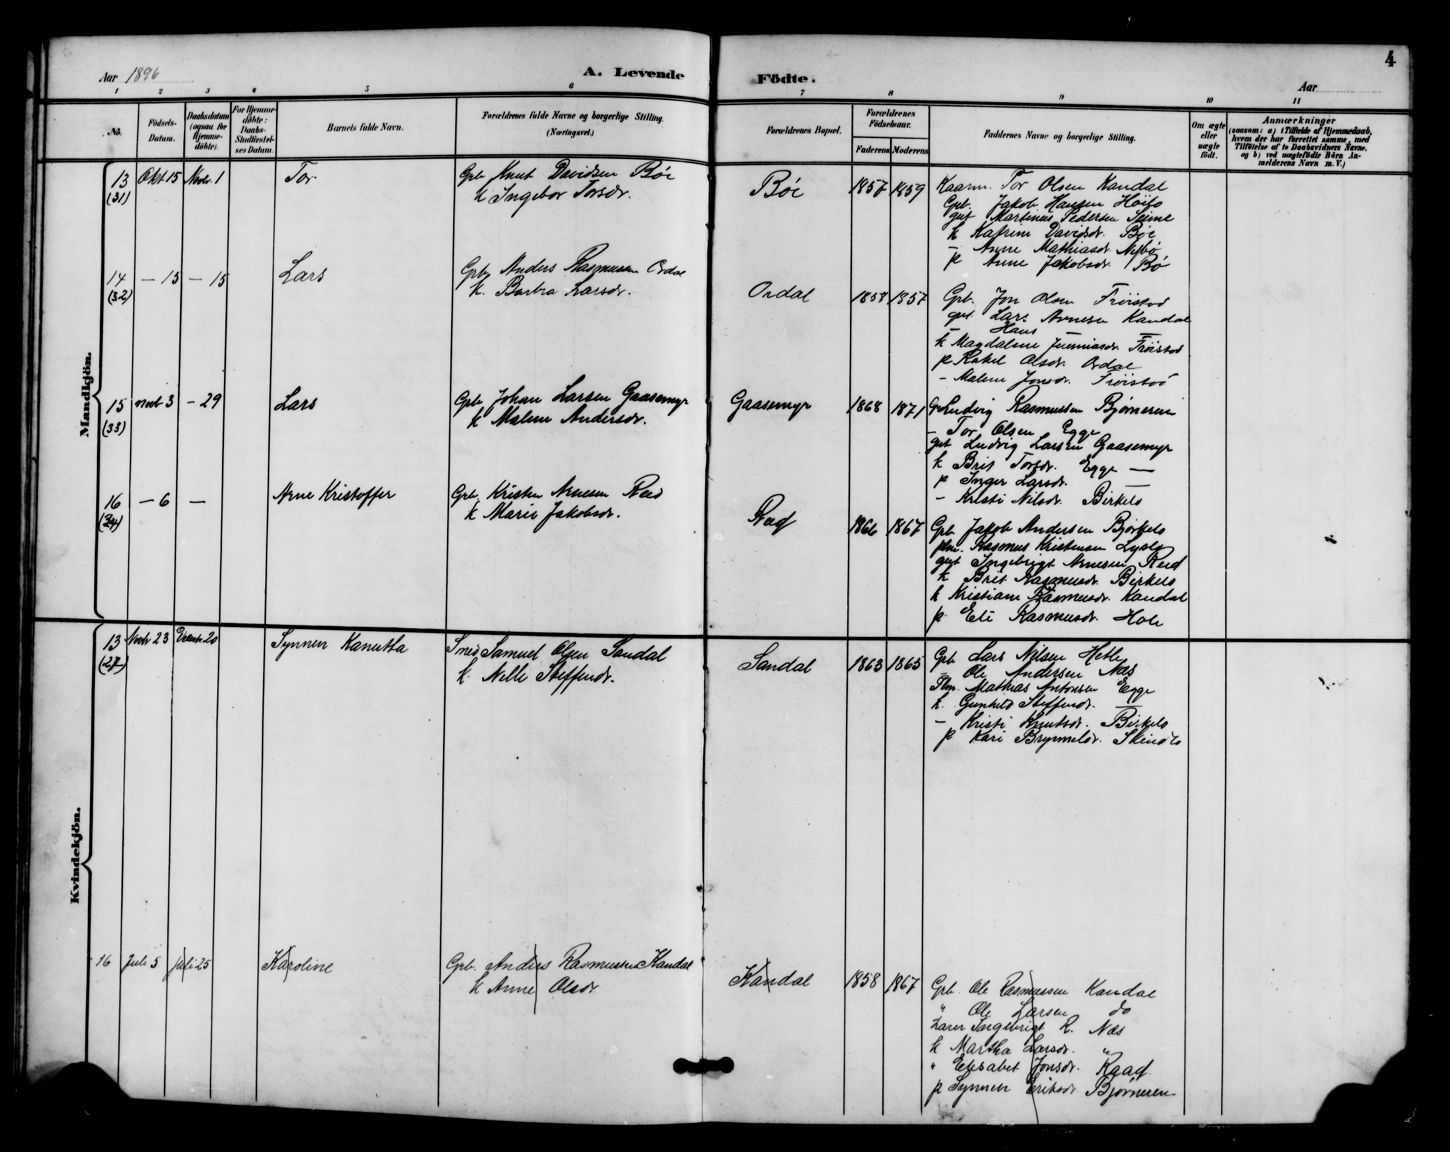 4
Aar 1896
A. Levende
Födte.
Aar
1 2 3 4 5 6 7 8 9 10 11
No.
Födsels-
Datum.
Daabsdatum
(ogsaa for
Hjemme-
døbte).
For Hjemme-
døbte:
Daabs-
Stadfæstel-
ses Datum.
Barnets fulde Navn.
Forældrenes fulde Navne og borgerlige Stilling.
(Næringsvei.)
Forældrenes Bopæl.
Forældrenes
Födselsaar.
Faderens. Moderens.
Faddernes Navne og borgerlige Stilling.
Om ægte
eller
uægte
født.
Anmærkninger
(saasom: a) i Tilfælde af Hjemmedaab,
hvem der har forrettet samme, med
Tilføielse af to Daabsvidners Navne.
og b) ved uægtefødte Börn An-
melderens Navn m. V.)
Mandkjön.
13
(31)
Okt 15 Novb. 1
Tor
Gpb. Knut Davidsen Böe
k Ingebor Torsdr.
Böe
1857 1859
Kaarm. Tor Olsen Kandal
Gpb. Jakob Hansen
gut Martenus Pedersen
k Katrine Davidsdr. Böe
– Anne Mathiasdr.
p Anne Jakobsdr. Bö
14
(32)
– 15 – 15
Lars
Gpb. Anders Rasmussen Ordal
k. Barbra Larsdr.
Ordal
1858 1857
Gpb. Jon Olsen Fröistad
gut Lars Arnesen Kandal
– Hans – –
k Magdalene Fröistad
p Rakel Olsdr. Ordal
– Malene Jonsdr. Fröistad
15
(33)
Novb 3 – 29
Lars
Gpb. Johan Larsen Gaasemyr
k Malene Andersdr.
Gaasemyr
1868 1871
Gpb Ludvig Rasmussen Bjørneren
– Tor Olsen Egge
gut Ludvig Larsen Gaasemyr
k Brit Torsdr. Egge
p Inger Larsdr. –
– Kristi Nilsdr. Birkelo
16
(34)
– 6 –
Arne Kristoffer
Gpb. Kristen Arnesen Red
k Marie Jakobsdr.
Red
1866 1867
Gpb. Jakob Andersen
Plm. Rasmus Kristensen
gut Ingebrigt Arnesen Red
k Brit Rasmusdr. Birkelo
k Kristiane Rasmusdr. Kandal
p. Eli Rasmusdr. Hole
Kvindekjön.
13
(27)
Novb 23 Decemb. 20
Synneu Kanutta
Smed Samuel Olsen Sandal
k. Nille Steffensdr.
Sandal
1863 1865
Gpb Lars Nilsen Hetle
– Ole Andersen Næs
Plm. Mathias Antonsen Egge
k. Gunhild Steffensdr. –
– Kristi Knutsdr. Birkelo
p Kari Brynnildsdr.
16
Juli 5 Juli 25
Karoline
Gpb. Anders Rasmussen Kandal
k Anne Olsdr
Kandal
1858 1867
Gpb. Ole Rasmussen Kandal
" Ole Larsen do
Lærer Ingebrigt R. Næs
k Martha Larsdr. "
" Elisabet Jonsdr. Raad
p Synneu Eriksdr Bjørneren